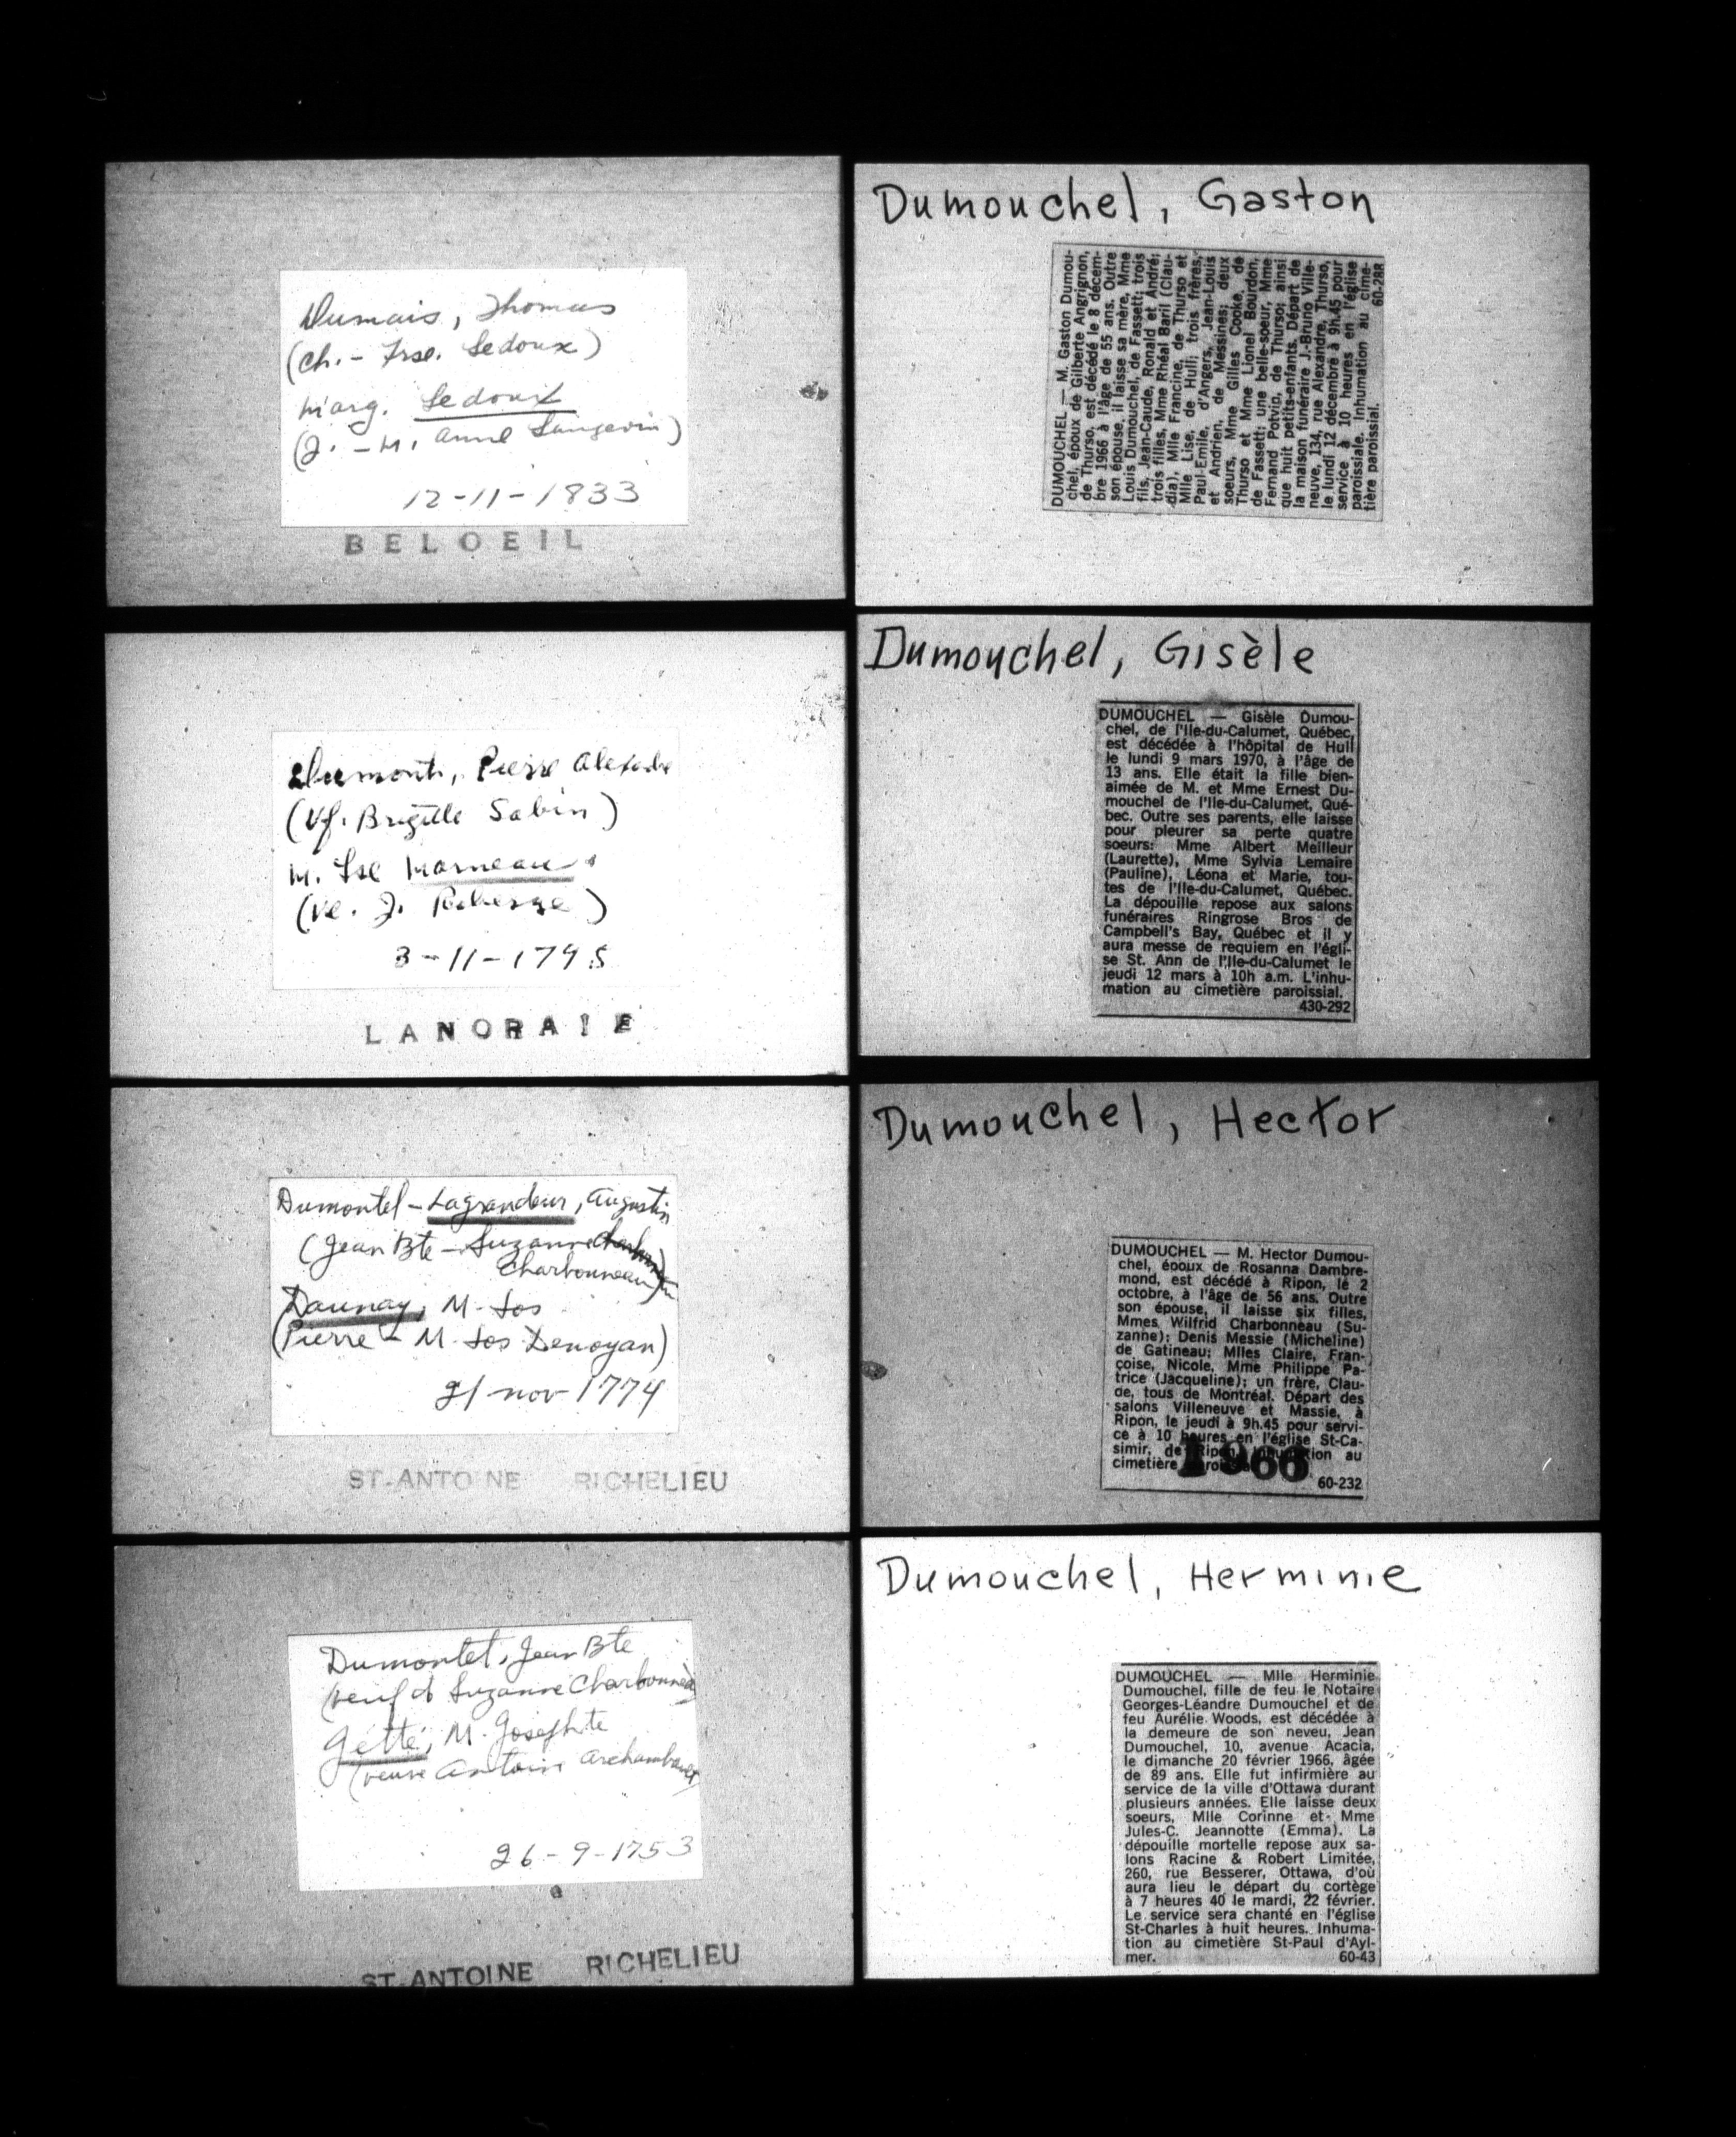 Dumais, Thomas
(Ch. - Frse. Ledoux)
Marg. Ledoux
(J. - M. Anne Langevin)
12-11-1833
BELOEIL
Dumont, Pierre Alexandre
(Vf. Brigitte Sabin)
M. Fse Marneau
(Ve. J.
3-11-1795
LANORAIE
Dumontel - Lagrandeur, Augustin
(Jean Bte - Suzanne
Charbonneau)
Daunay, M. Jos
(Pierre - M. Jos Denoyan)
21 nov 1774
ST-ANTOINE RICHELIEU
Dumontet, Jean Bte
(veuf d Suzanne Charbonneau)
Jetté, M. Josephte
(veuve Antoine Archambault)
26-9-1753
ST-ANTOINE RICHELIEU
Dumouchel, Gaston
DUMOUCHEL — M. Gaston Dumou-
chel, époux de Gilberte Angrignon,
de Thurso, est décédé le 8 décem-
bre 1966 à l'âge de 55 ans. Outre
son épouse, il laisse sa mère, Mme
Louis Dumouchel, de Fassett; trois
fils, Jean-Caude, Ronald et André;
trois filles, Mme Rhéal Baril (Clau-
dia), Mlle Francine, de Thurso et
Mlle Lise, de Hull; trois frères,
Paul-Emile, d'Angers, Jean-Louis
et Andrien, de Messines; deux
soeurs, Mme Gilles Cooke, de
Thurso et Mme Lionel Bourdon,
de Fassett; une belle-soeur, Mme
Fernand Potvin, de Thurso; ainsi
que huit petits-enfants. Départ de
la maison funéraire J.-Bruno Ville-
neuve, 134, rue Alexandre, Thurso,
le lundi 12 décembre à 9h.45 pour
service à 10 heures en l'église
paroissiale. Inhumation au cime-
tière paroissial. 60-288
Dumouchel, Gisèle
DUMOUCHEL — Gisèle Dumou-
chel, de l'Ile-du-Calumet, Québec,
est décédée à l'hôpital de Hull
le lundi 9 mars 1970, à l'âge de
13 ans. Elle était la fille bien-
aimée de M. et Mme Ernest Du-
mouchel de l'Ile-du-Calumet, Qué-
bec. Outre ses parents, elle laisse
pour pleurer sa perte quatre
soeurs: Mme Albert Meilleur
(Laurette), Mme Sylvia Lemaire
(Pauline), Léona et Marie, tou-
tes de l'Ile-du-Calumet, Québec.
La dépouille repose aux salons
funéraires Ringrose Bros de
Campbell's Bay, Québec et il y
aura messe de requiem en l'égli-
se St. Ann de l'Ile-du-Calumet le
jeudi 12 mars à 10h a.m. L'inhu-
mation au cimetière paroissial.
430-292
Dumouchel, Hector
DUMOUCHEL — M. Hector Dumou-
chel, époux de Rosanna Dambre-
mond, est décédé à Ripon, le 2
octobre, à l'âge de 56 ans. Outre
son épouse, il laisse six filles,
Mmes Wilfrid Charbonneau (Su-
zanne); Denis Messie (Micheline)
de Gatineau; Mlles Claire, Fran-
çoise, Nicole, Mme Philippe Pa-
trice (Jacqueline); un frère, Clau-
de, tous de Montréal. Départ des
salons Villeneuve et Massie, à
Ripon, le jeudi à 9h.45 pour servi-
ce à 10 heures en l'église St-Ca-
simir, de Ripon. Inhumation au
cimetière
1966
60-232
Dumouchel, Herminie
DUMOUCHEL — Mlle Herminie
Dumouchel, fille de feu le Notaire
Georges-Léandre Dumouchel et de
feu Aurélie Woods, est décédée à
la demeure de son neveu, Jean
Dumouchel, 10, avenue Acacia,
le dimanche 20 février 1966, âgée
de 89 ans. Elle fut infirmière au
service de la ville d'Ottawa durant
plusieurs années. Elle laisse deux
soeurs, Mlle Corinne et Mme
Jules-C. Jeannotte (Emma). La
dépouille mortelle repose aux sa-
lons Racine & Robert Limitée,
260, rue Besserer, Ottawa, d'où
aura lieu le départ du cortège
à 7 heures 40 le mardi, 22 février.
Le service sera chanté en l'église
St-Charles à huit heures. Inhuma-
tion au cimetière St-Paul d'Ayl-
mer. 60-43